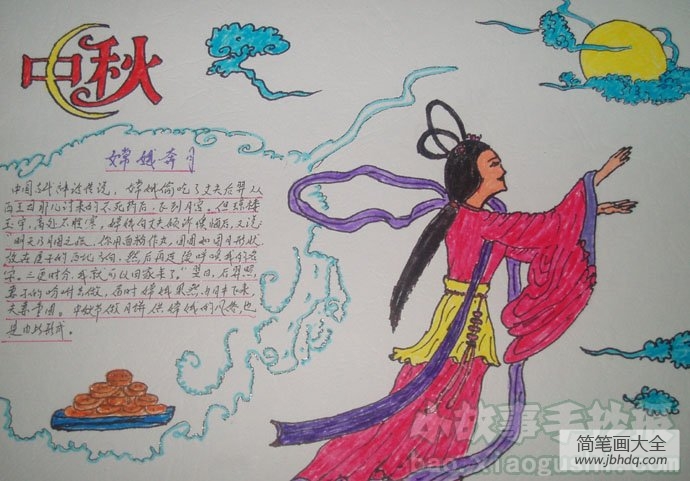 中秋
嫦娥奔月
中国古代神话传说，嫦娥偷吃了丈夫后羿从
西王母那儿讨来的不死药后，飞到月宫。但琼楼
玉宇，高处不胜寒，嫦娥向丈夫倾诉懊悔后，又说：
“明天乃月圆之候，你用面粉作丸，团团如圆月形状，
放在屋子的西北方向，然后再连续呼唤我的名
字。三更时分，我就可以回家来了。”翌日，后羿照
妻子的吩咐去做，届时嫦娥果然由月中飞来，
夫妻重圆。中秋节做月饼供嫦娥的风俗，也
是由此形成。
小故事手抄报
bao.xiaogushi.com
简笔画大全
www.jbhdq.com